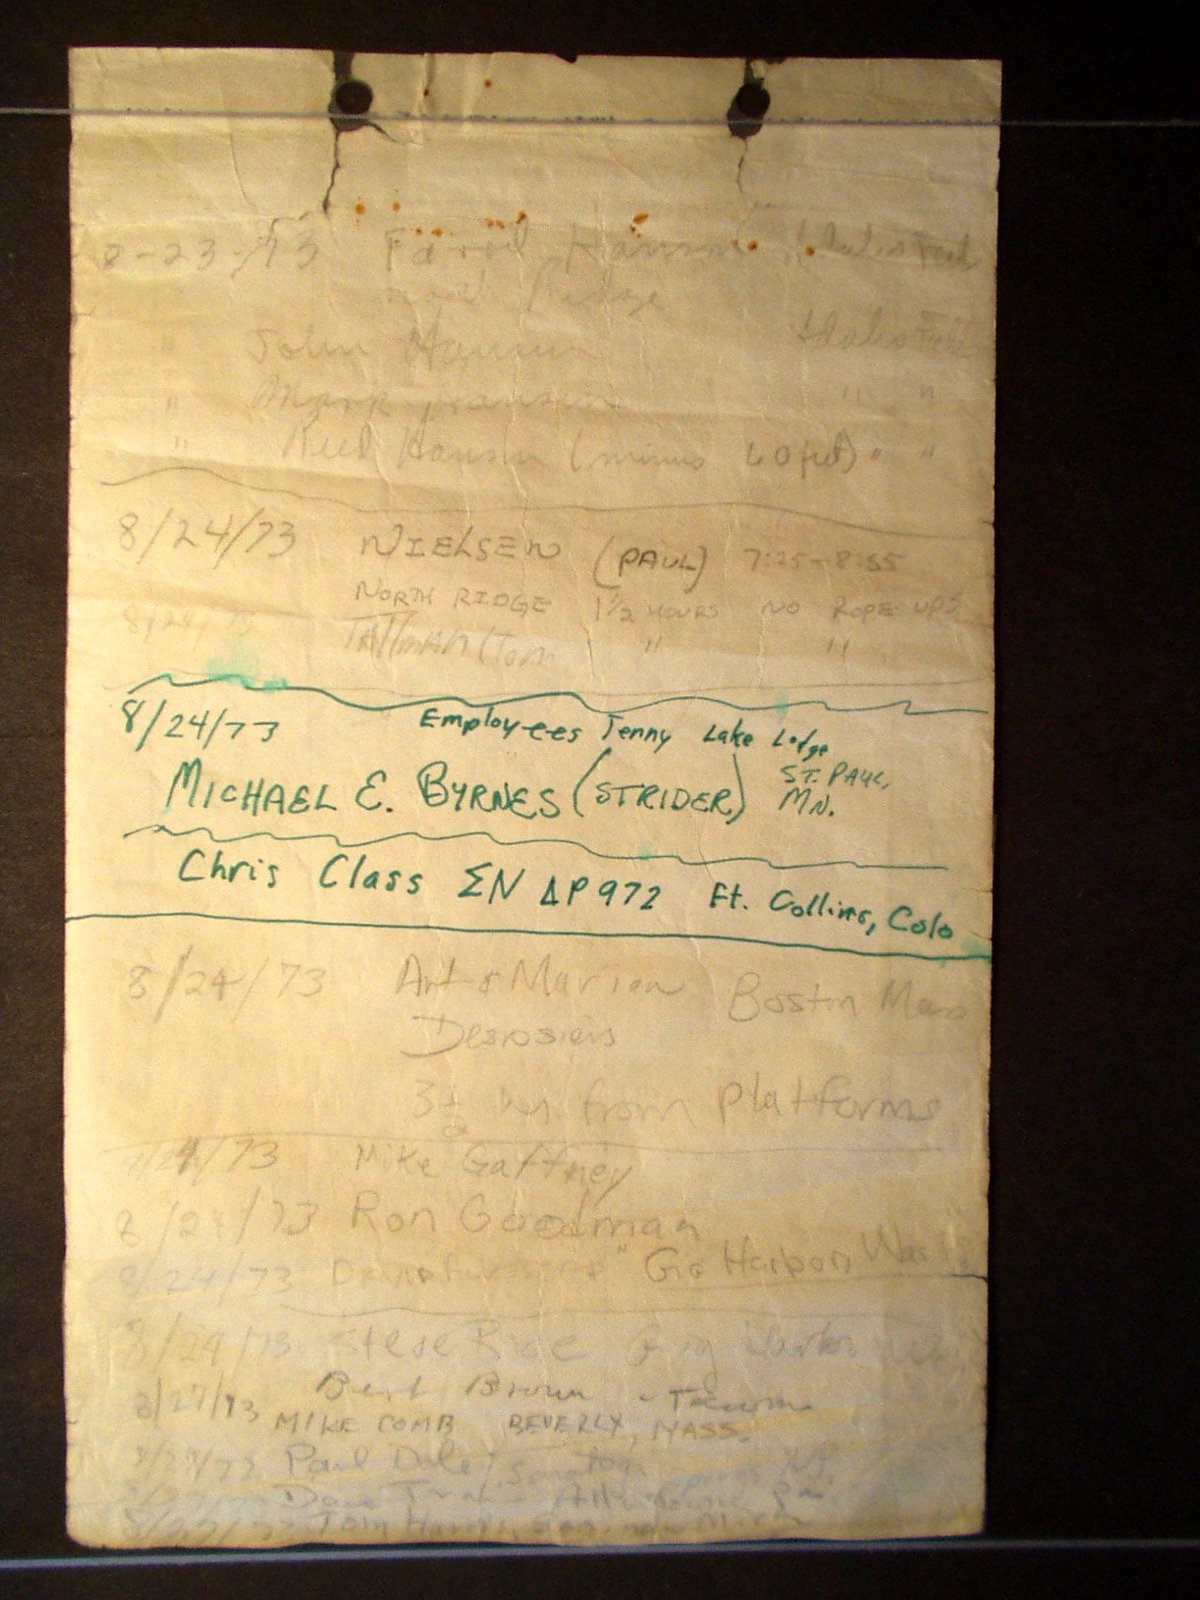 8-23-73 Farrel Hansen Idaho Falls
North Ridge
" John Hansen Idaho Falls
" Mark Hansen " "
" Reed Hansen (minus 60 feet) " "
8/24/73 NIELSEN (PAUL) 7:25-8:55
NORTH RIDGE 1 1/2 HOURS NO ROPE UPS
8/24/73 TALLMAN (Tom " "
8/24/73 Employ-e-es Jenny Lake Lodge
MICHAEL E. BYRNES (STRIDER) ST. PAUL, MN.
Chris Class ΣN ΔP972 Ft. Collins, Colo
8/24/73 Art & Marion Boston Mass
Desrosiers
3 1/2 hrs. from platforms
8/24/73 Mike Gaffney
8/24/73 Ron Goodman
8/24/73 " Gig Harbor Wash
8/24/73 Steve Rice Gig Harbor
8/27/73 Bert Brown - Tacoma
MIKE COMB BEVERLY, MASS.
8/27/73 Paul Daley Saratoga Springs N.Y.
Dave Pa.
Tom Saginaw Mich